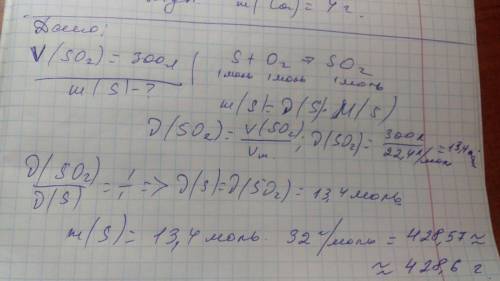 m(Ca) = 4 г.
Дано:
V(SO₂) = 300л
m(S) - ?
S + O₂ = SO₂
1моль 1моль 1моль
m(S) = ν(S)·M(S)
ν(SO₂) = V(SO₂)/Vm; ν(SO₂) = 300л/22,4л/моль = 13,4моль
ν(SO₂)/ν(S) = 1/1 => ν(S) = ν(SO₂) = 13,4 моль
m(S) = 13,4 моль · 32 г/моль = 428,57 ≈
≈ 428,6 г.